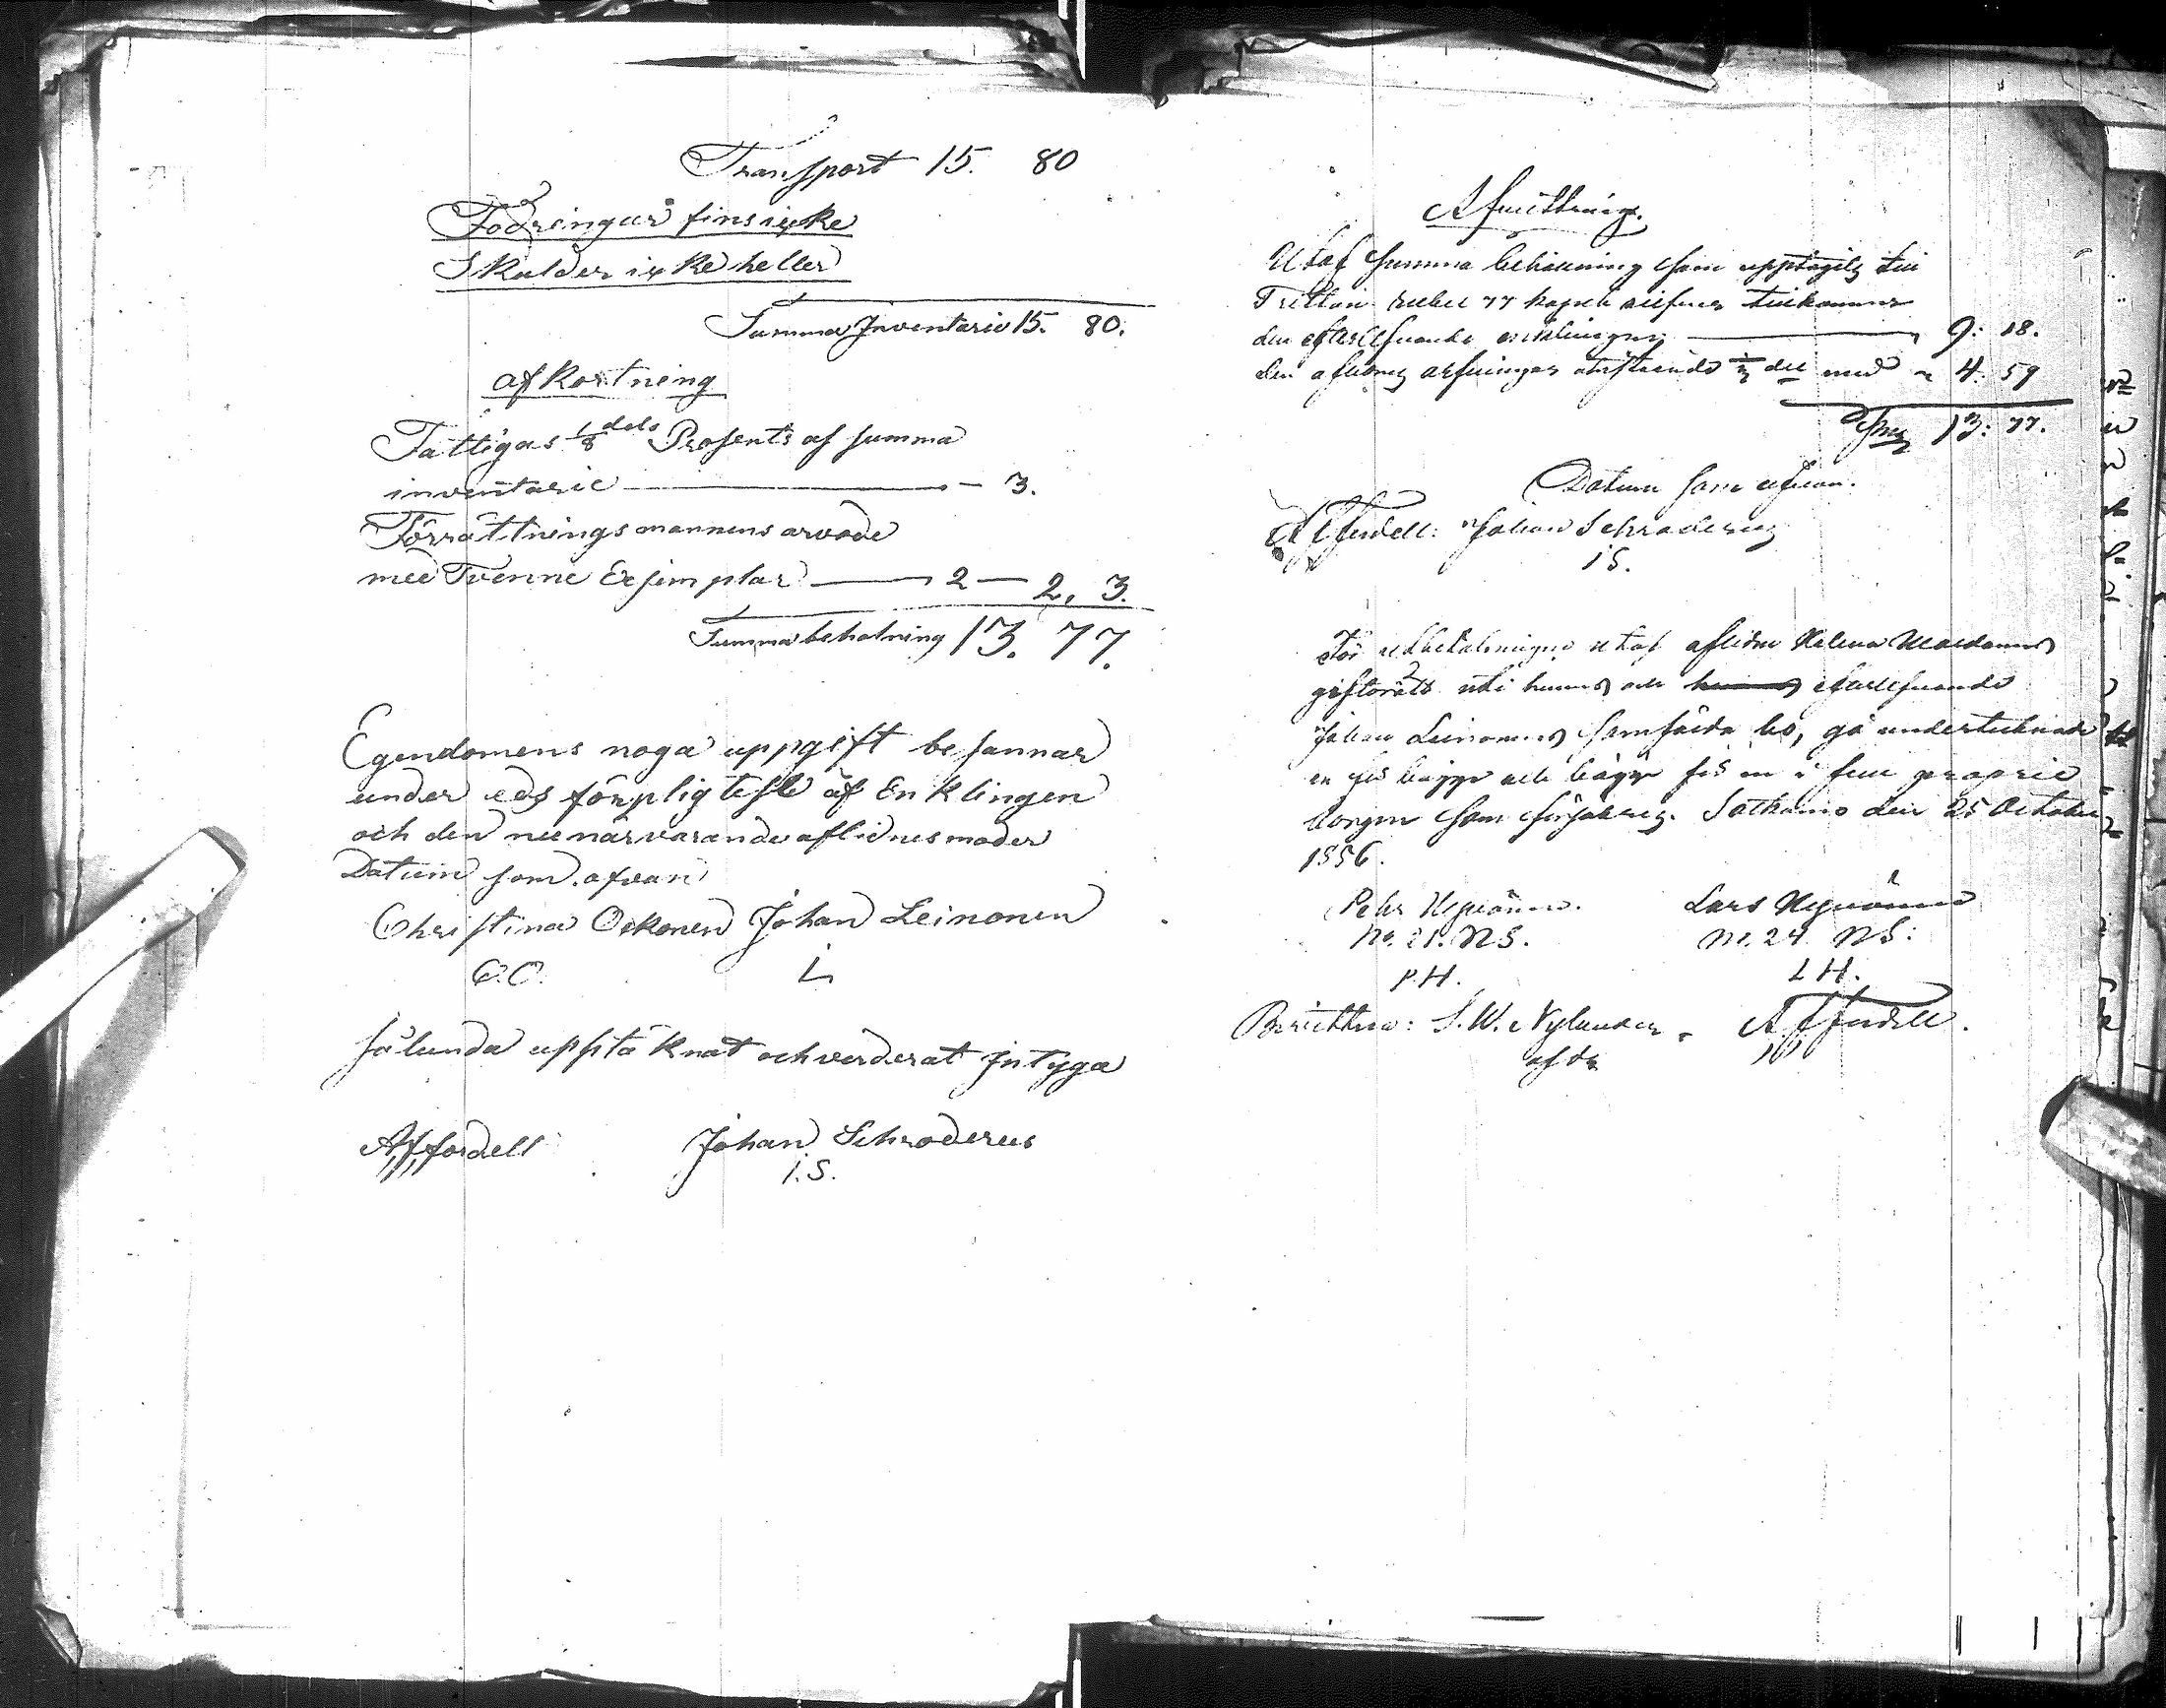 Transport 15. 80
Fodringar fins icke
Skulder icke heller
Summa Inventario 15. 80.
afkortning
Fattigas 1/8 dels Prosents af summa
inventarie — 3.
Förrättningsmannens arvode
med Tvenne Exsimplar — 2 — 2, 3.
Summa behalning 13. 77.
Egendomens noga uppgift besannar
under eds förpligtelse af Enklingen
och den nu närvarande aflidnes moder
Datum som ofvan
Christina Oskonen Johan Leinonen
C.O. L
Sålunda upptäknat och verderat Intyga
Affordell Johan Schroderus
I.S.
Afvittring.
Utaf summa behållning som upptagits till
Tretton rubel 77 kopek silfver tillkommer
den efterlefvande enklingen — 9: 18.
den aflidnes arfvingar återstående 1/3 del med 4: 59
S:mr 13: 77.
Datum som ofvan.
Affordell: Johan Schroderus
IS.
För utbetalningen utaf aflidne Helena
giftorätt uti hennes och efterlefvande
Johan Leinonens samfälda bo, gå undertecknade
en för begge och begge för en i full proprie
borgen som försäkras. Sotkamo den 25 October
1856.
Pehr Lars
No. 21. NS. No. 24 NS:
P.H. L H.
Bevittna: S. W. Nylander Affordell.